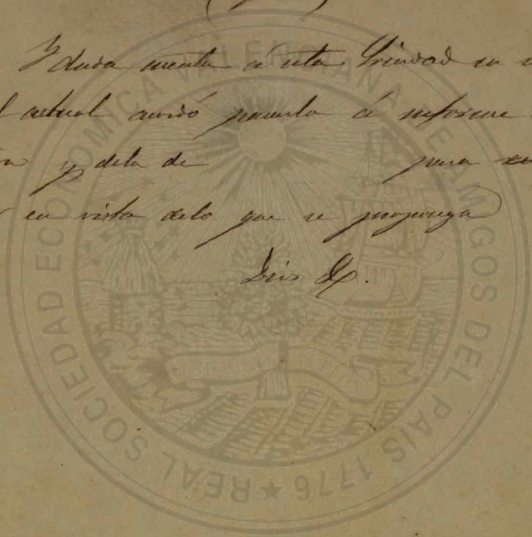 Y dada cuenta á esta Sociedad en
actual acordó pasarla á informe
y de la de para
en vista de lo que se proponga
Dios G.
REAL SOCIEDAD ECONOMICA VALENCIANA DE AMIGOS DEL PAIS 1776